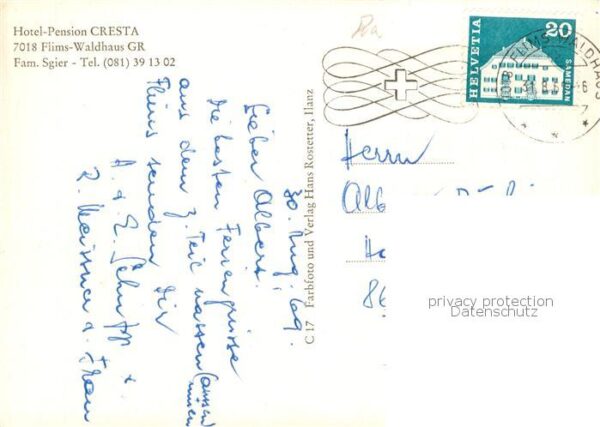 Hotel-Pension CRESTA
7018 Flims-Waldhaus GR
Fam. Sgier - Tel. (081) 39 13 02
HELVETIA
20
SAMEDAN
FLIMS-WALDHAUS
C 17 Farbfoto und Verlag Hans Rostetter, Ilanz
30. Aug. 69.
Lieber Albert!
Die besten Feriengrüsse
aus dem z. Teil nassen (aussen)
Flims senden Dir
A. & E.
R. Meissner u. Frau
Herrn
Alb
86
privacy protection
Datenschutz